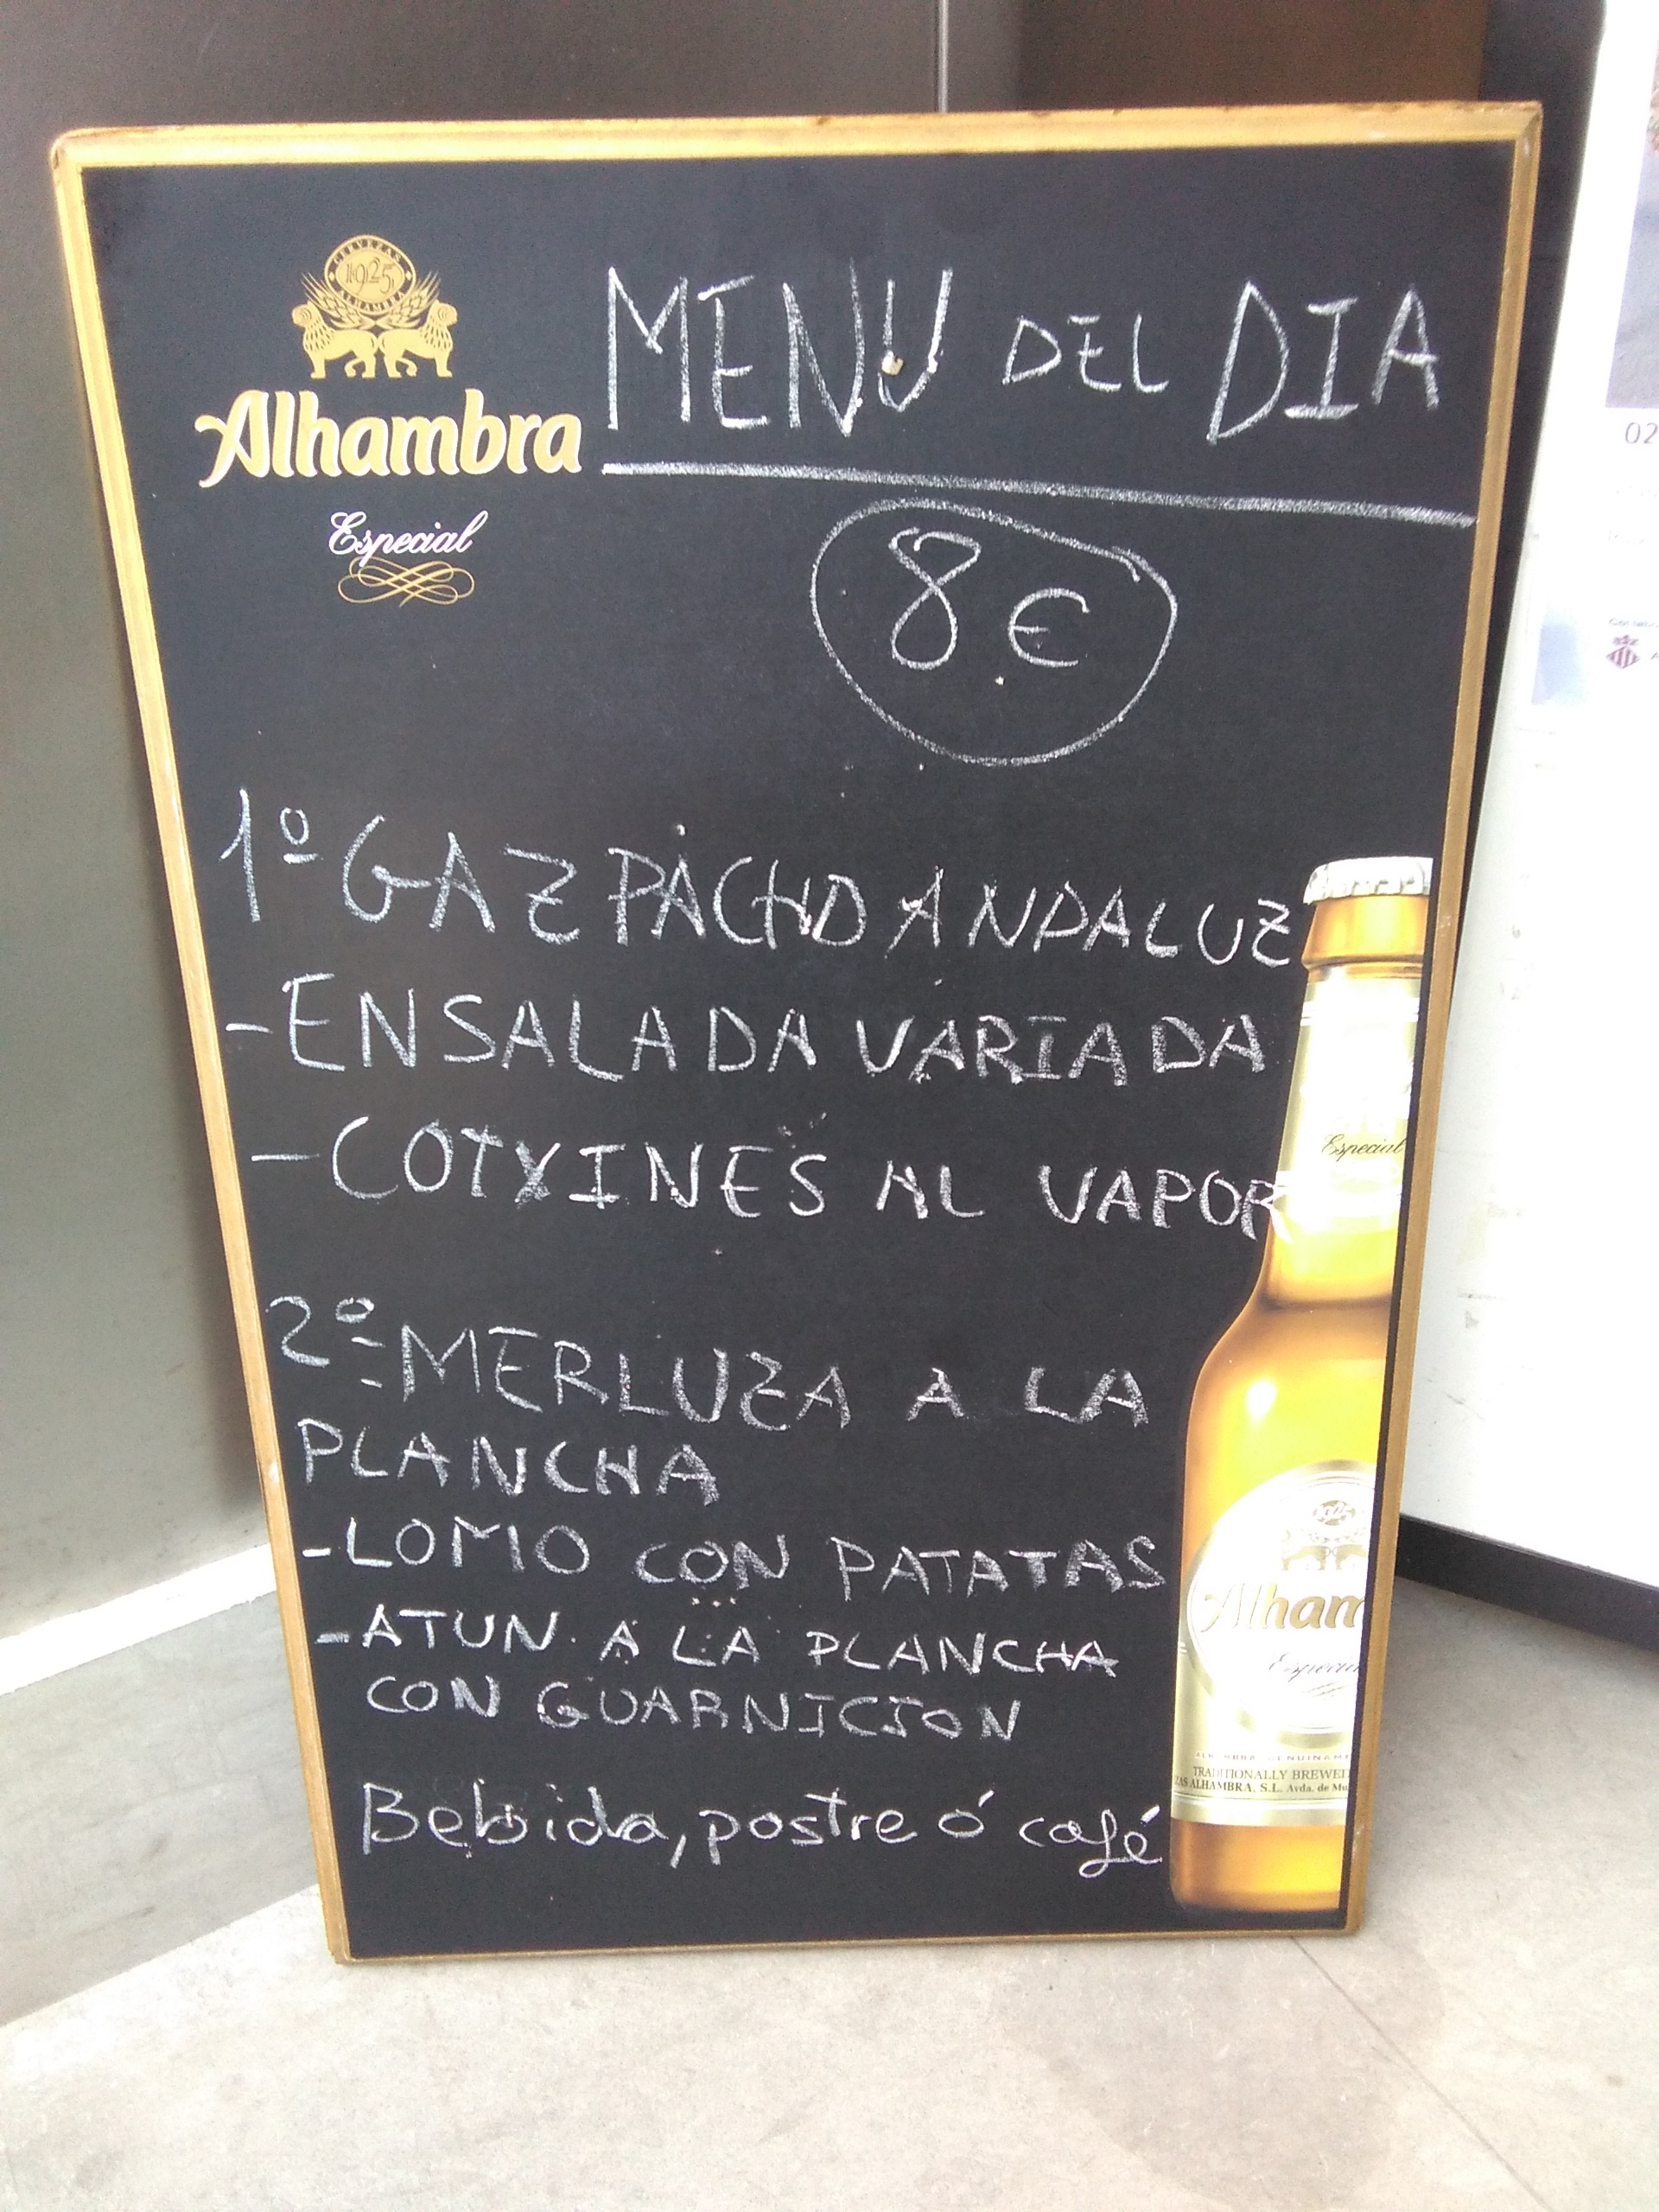 CERVEZAS
1925
ALHAMBRA
Alhambra
Especial
MENU DEL DIA
8€
1º GAZPACHO ANDALUZ
-ENSALADA VARIADA
-COTXINES AL VAPOR
2º-MERLUZA A LA
PLANCHA
-LOMO CON PATATAS
-ATUN A LA PLANCHA
CON GUARNICION
Bebida, postre ó café
Especial
Alham
Especial
TRADITIONALLY BREWED
ALHAMBRA, S.L. Avda. de Mu
02